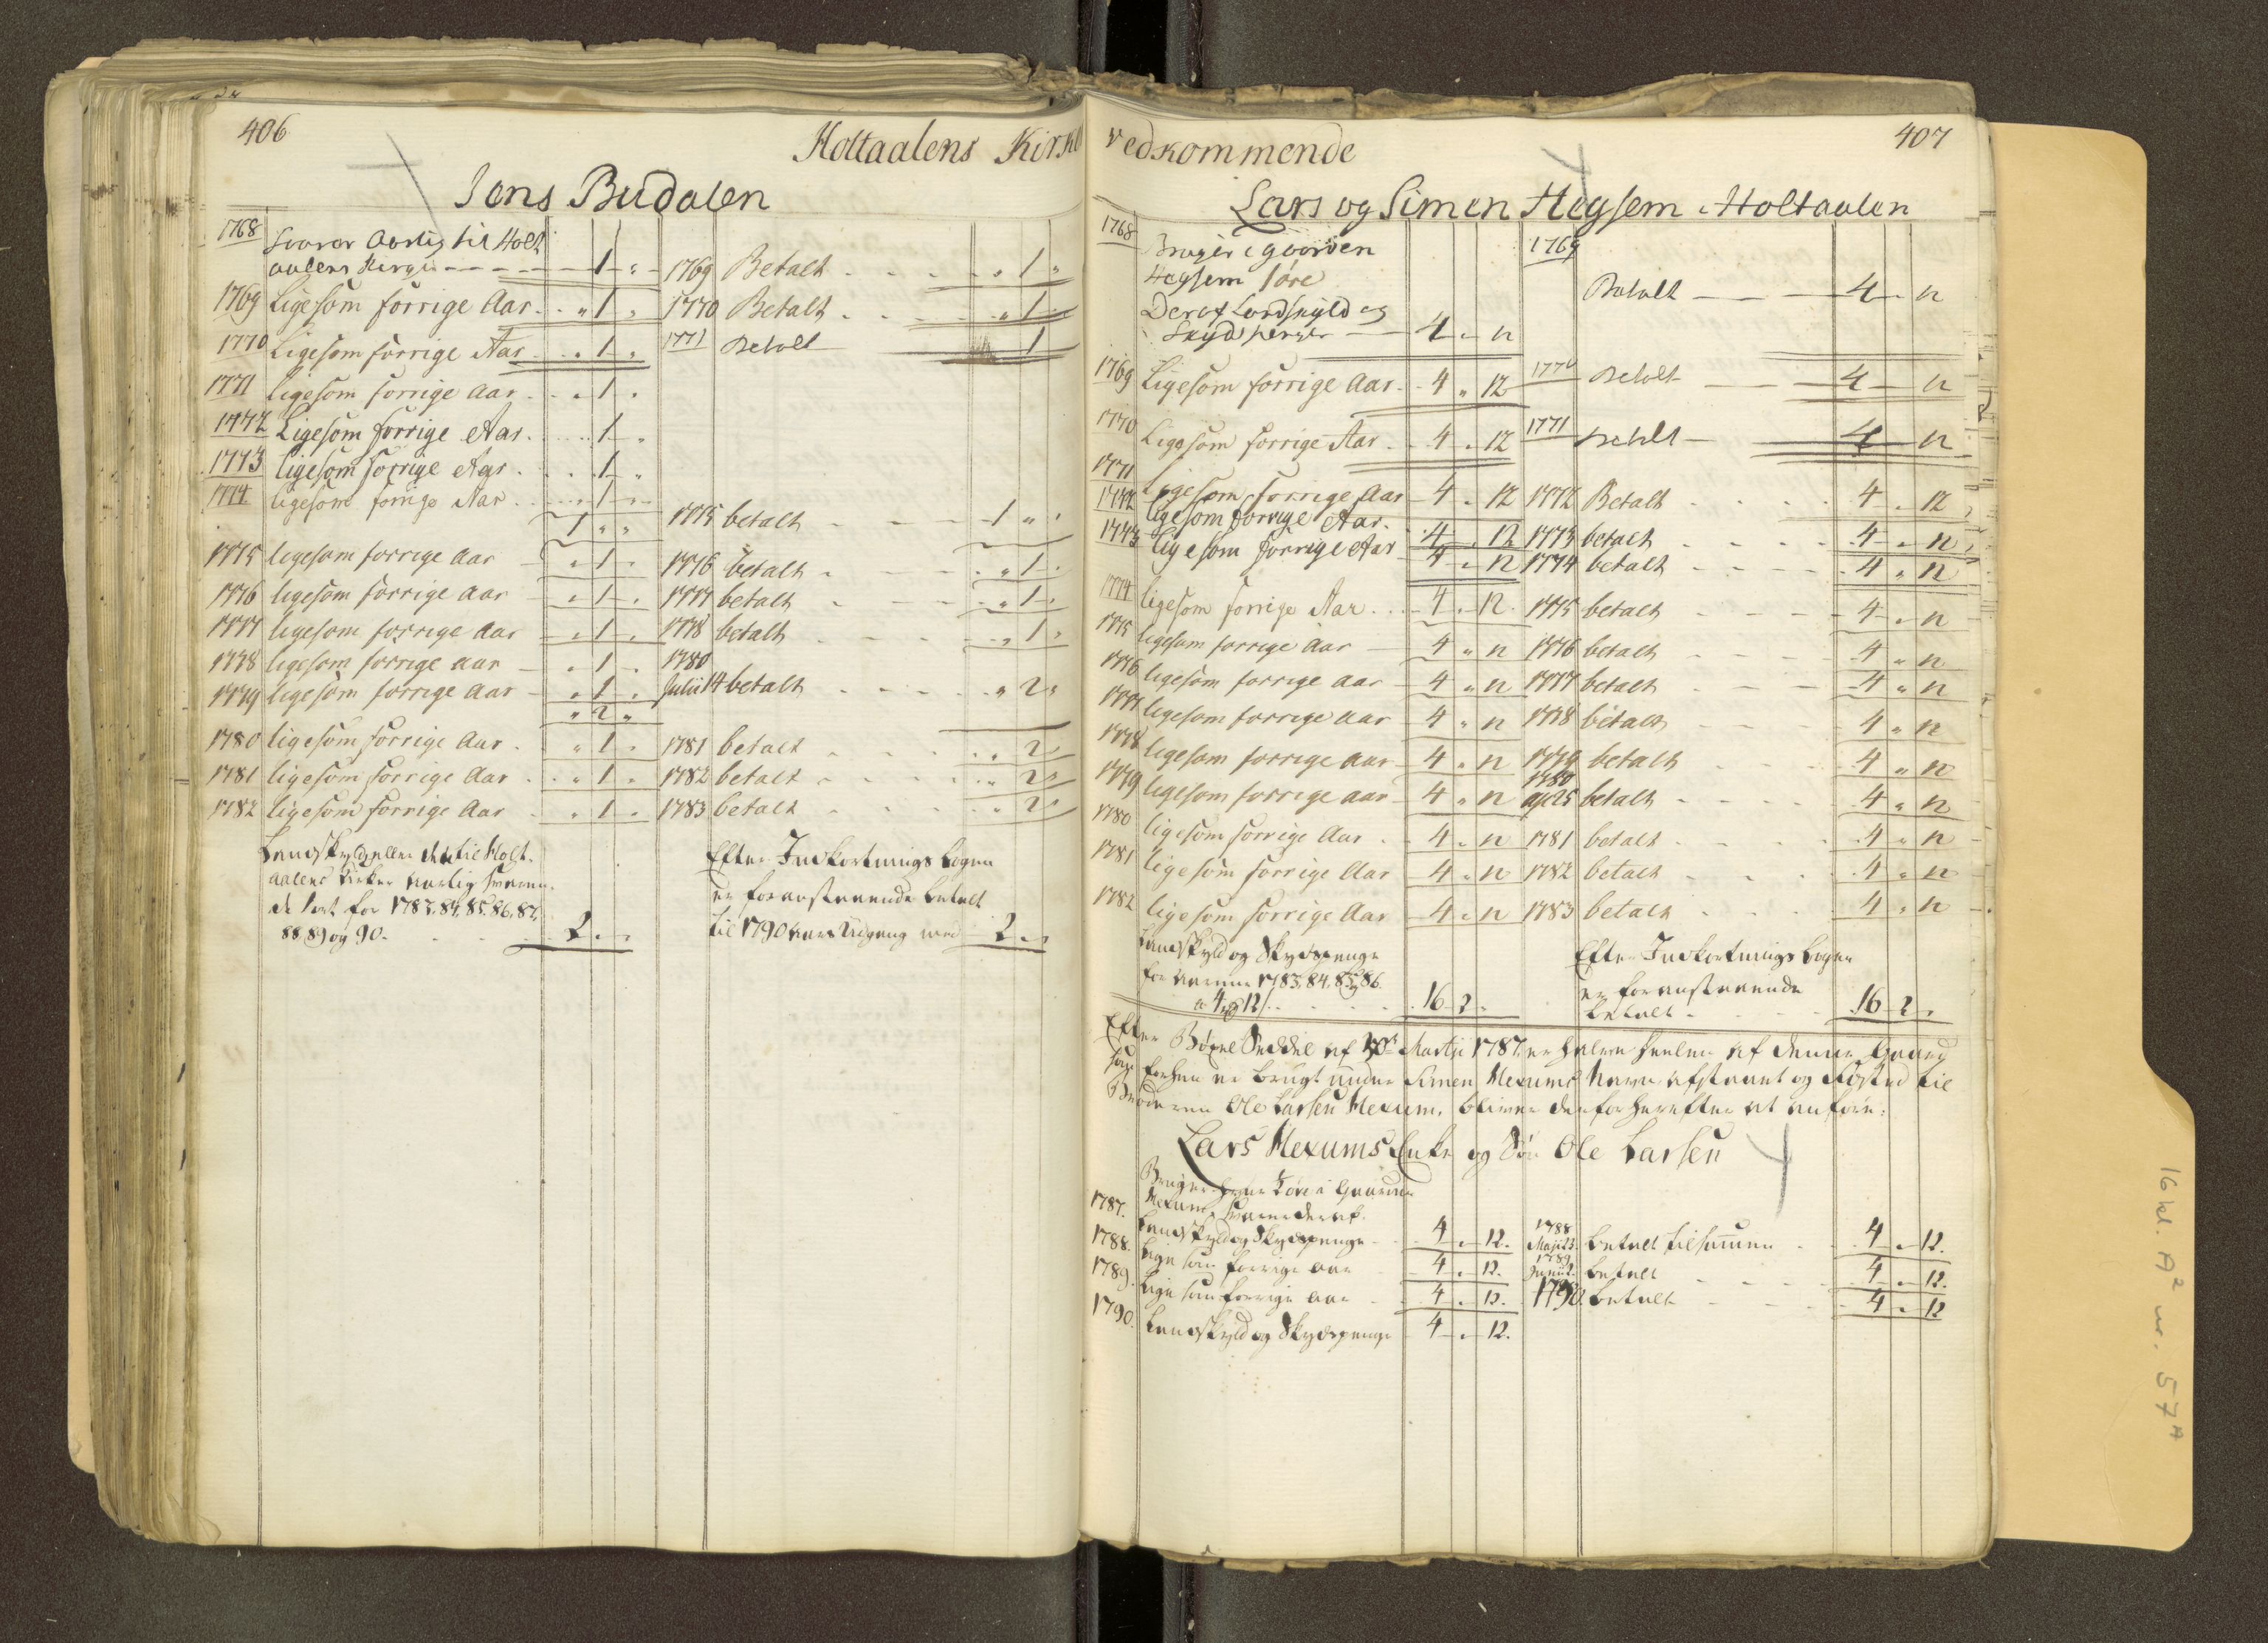 406
Holtaalens Kirke
Jens Budalen
1768 Svarer Aarlig til Holt
aalens Kirge 1 "
1769 Betalt " 1 "
1769 Ligesom forrige Aar " 1 "
1770 Betalt " 1
1770 Ligesom forrige Aar " 1 "
1771 Betalt 1
1771 ligesom forrige Aar " 1 "
1772 Ligesom forrige Aar 1 "
1773 ligesom forrige Aar 1 "
1774 ligesom forrige Aar 1 "
1 " "
1775 betalt 1 " "
1775 ligesom forrige Aar " 1 "
1776 betalt " 1 "
1776 ligesom forrige Aar " 1 "
1777 betalt " 1 "
1777 ligesom forrige Aar " 1 "
1778 betalt " 1 "
1778 ligesom forrige aar " 1 "
1780
1779 ligesom forrige Aar " 1 "
Julii 14 betalt " 2 "
" 2 "
1780 ligesom forrige Aar " 1 "
1781 betalt " 2 "
1781 ligesom forrige Aar " 1 "
1782 betalt " 2 "
1782 ligesom forrige Aar " 1 "
1783 betalt " 2 "
Landskyld eller det til Holt-
aalens Kirke aarlig svares.
de 1783, 84, 85, 86, 87,
88, 89 og 90. 2 " "
Efter Indkortnings bogen
er foranstaaende betalt
til 1790 aars Udgang med 2 " "
vedkommende
407
Lars og Simen Hegsem i Holtaalen
1768 Bruger gaarden
Hegsem Søre
Deraf Landskyld og
Skydspenger 4 " 12
1769
Betalt 4 " 12
1769 Ligesom forrige Aar 4 " 12
1770 Betalt 4 12
1770 Ligesom forrige Aar 4 " 12
1771 betalt 4 12
1771 Ligesom forrige Aar 4 " 12
1772 Betalt 4 " 12
1772 ligesom forrige Aar 4 " 12
1773 betalt 4 " 12
1773 ligesom forrige Aar 4 " 12
1774 betalt 4 " 12
1774 ligesom forrige Aar 4 " 12
1775 betalt 4 " 12
1775 ligesom forrige Aar 4 " 12
1776 betalt 4 " 12
1776 ligesom forrige aar 4 " 12
1777 betalt 4 " 12
1777 ligesom forrige aar 4 " 12
1778 betalt 4 " 12
1778 ligesom forrige aar 4 " 12
1779 betalt 4 " 12
1779 ligesom forrige aar 4 " 12
1780
ap 25 betalt 4 " 12
1780 ligesom forrige Aar 4 " 12
1781 betalt 4 " 12
1781 ligesom forrige Aar 4 " 12
1782 betalt 4 " 12
1782 ligesom forrige Aar 4 " 12
1783 betalt 4 " 12
Landskyld og Skydspenge
for aarene 1783, 84, 85 og 86.
a 4 12 16 2 "
Efter Indkortnings bogen
er foranstaaende
betalt 16 2 "
Efter Bøxel Seddel af Martii 1787 er halve deelen af denne Gaard
som forhen er brugt under Simen Hexums Navn afstaaet og fæsted til
Broderen Ole Larsen Hexum, bliver derfor herefter at anføre:
Lars Hexums Enke og Søn Ole Larsen
Bruger Søre Gaarden
1787. Hexum, svarer deraf.
Landskyld og Skydspenge 4 " 12.
1788
Maji 23. betalt tilsammen 4 " 12.
1788. Lige som forrige aar 4 " 12.
1789
Junii 2. betalt 4 " 12.
1789. Lige som forrige aar 4 " 12.
1790. betalt 4 " 12
1790. Landskyld og Skydspenge 4 " 12.
16 kl. A² nr. 57ᴬ